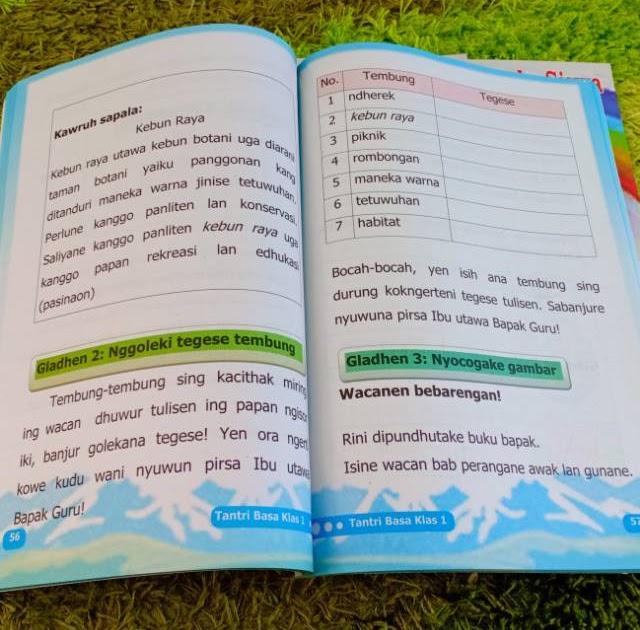 Kawruh sapala:
Kebun Raya
Kebun raya utawa kebun botani uga diarani
taman botani yaiku panggonan kang
ditanduri maneka warna jinise tetuwuhan.
Perlune kanggo panliten lan konservasi.
Saliyane kanggo panliten kebun raya uga
kanggo papan rekreasi lan edhukasi
(pasinaon)
Gladhen 2: Nggoleki tegese tembung
Tembung-tembung sing kacithak miring
ing wacan dhuwur tulisen ing papan ngisor
iki, banjur golekana tegese! Yen ora ngerti
kowe kudu wani nyuwun pirsa Ibu utawa
Bapak Guru!
Tantri Basa Klas 1
56
No. Tembung Tegese
1 ndherek
2 kebun raya
3 piknik
4 rombongan
5 maneka warna
6 tetuwuhan
7 habitat
Bocah-bocah, yen isih ana tembung sing
durung kokngerteni tegese tulisen. Sabanjure
nyuwuna pirsa Ibu utawa Bapak Guru!
Gladhen 3: Nyocogake gambar
Wacanen bebarengan!
Rini dipundhutake buku bapak.
Isine wacan bab perangane awak lan gunane.
Tantri Basa Klas 1
57